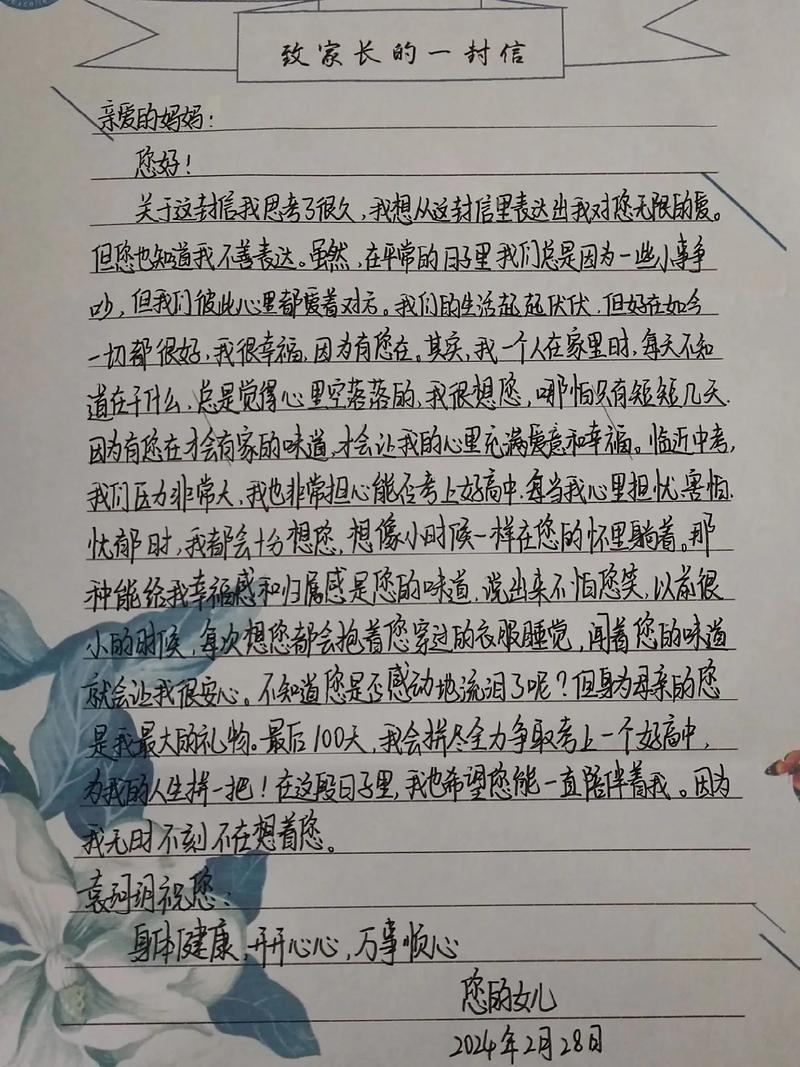 致家长的一封信
亲爱的妈妈：
您好！
关于这封信我思考了很久，我想从这封信里表达出我对您无限的爱。
但您也知道我不善表达。虽然，在平常的日子里我们总是因为一些小事争
吵，但我们彼此心里都爱着对方。我们的生活起起伏伏，但好在如今
一切都很好，我很幸福，因为有您在。其实，我一个人在家里时，每天不知
道在干什么，总是觉得心里空落落的，我很想您，哪怕只有短短几天.
因为有您在才会有家的味道，才会让我的心里充满爱意和幸福。临近中考，
我们压力非常大，我也非常担心能否考上好高中，每当我心里担忧.害怕.
忧郁时，我都会十分想您，想像小时候一样在您的怀里躺着。那
种能给我幸福感和归属感是您的味道，说出来不怕您笑，以前很
小的时候，每次想您都会抱着您穿过的衣服睡觉，闻着您的味道
就会让我很安心。不知道您是否感动地流泪了呢？但身为母亲的您
是我最大的礼物。最后100天，我会拼尽全力争取考上一个好高中，
为我的人生拼一把！在这段日子里，我也希望您能一直陪伴着我。因为
我无时不刻不在想着您。
袁珂玥祝您：
身体健康，开开心心，万事顺心
您的女儿
2024年2月28日